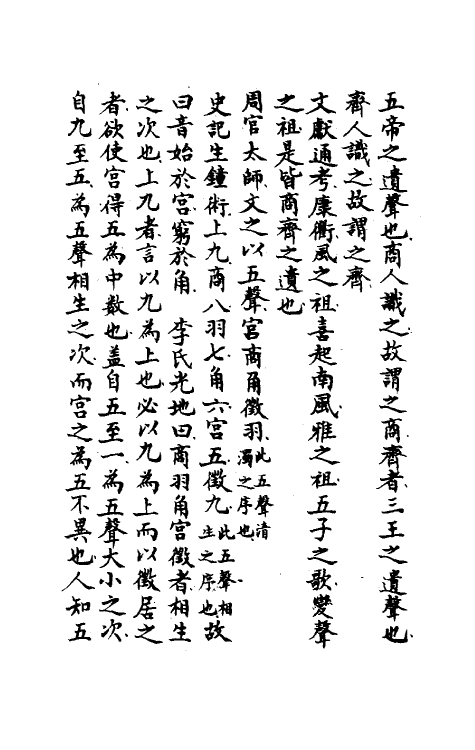 五帝之遺聲也商人識之故謂之商齊者三王之遺聲也
齊人識之故謂之齊
文獻通考康衢風之祖喜起南風雅之祖五子之歌變聲
之祖是皆商齊之遺也
周官太師文之以五聲宮商角徵羽此五聲清濁之序也
史記生鐘術上九商八羽七角六宮五徵九此五聲相生之序也故
曰音始於宮窮於角 李氏光地曰商羽角宮徵者相生
之次也上九者言以九為上也必以九為上而以徵居之
者欲使宮得五為中數也蓋自五至一為五聲大小之次
自九至五為五聲相生之次而宮之為五不異也人知五